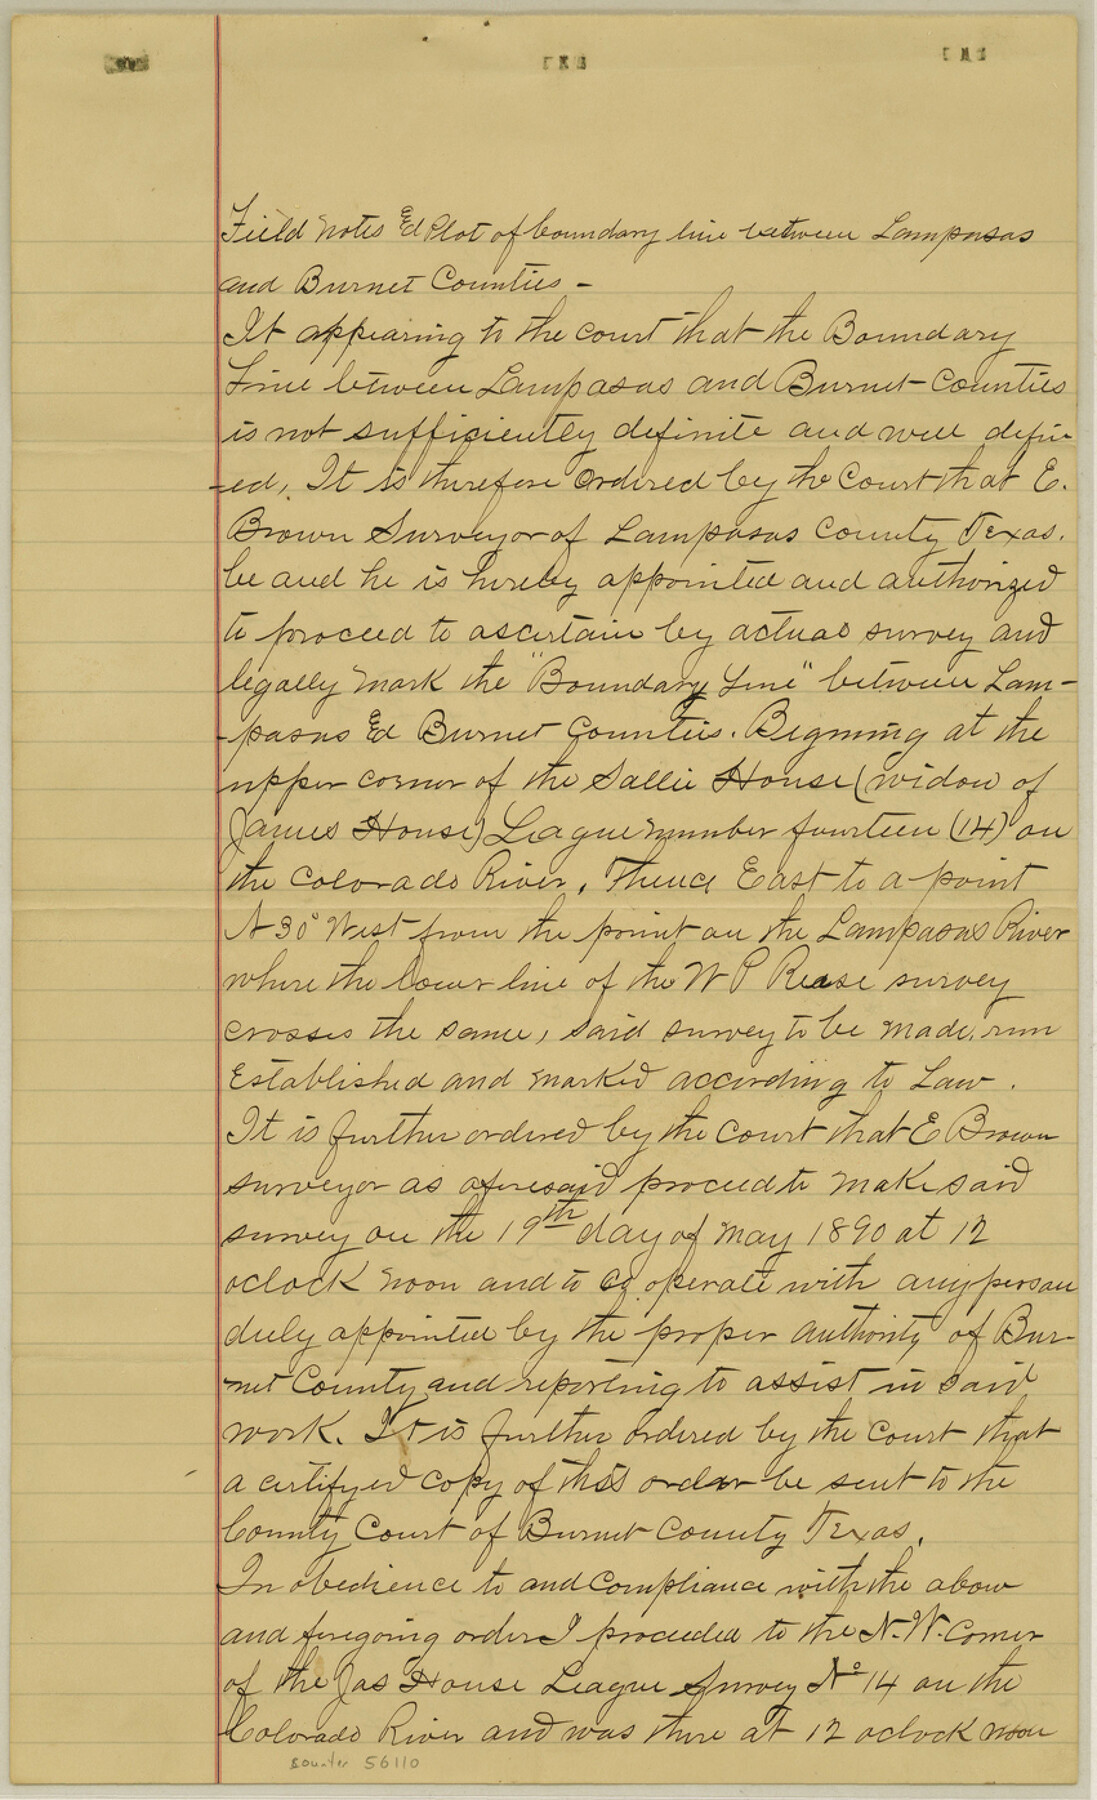 Field notes & Plot of boundary line between Lampasas
and Burnet Counties -
It appearing to the court that the Boundary
Line between Lampasas and Burnet Counties
is not sufficiently definite and well defin
-ed, It is therefore Ordered by the Court that E.
Brown Surveyor of Lampasas County Texas.
be and he is hereby appointed and authorized
to proceed to ascertain by actual survey and
legally mark the "Boundary Line" between Lam-
-pasas & Burnet Counties. Begining at the
upper corner of the Sallie House (widow of
James House) League number fourteen (14) on
the Colorado River, Thence East to a point
N 30° West from the point on the Lampasas River
where the lower line of the W P Rease survey
crosses the same, said survey to be made, run
Established and marked according to Law.
It is further ordered by the Court that E Brown
surveyor as aforesaid proceed to make said
survey on the 19th day of May 1890 at 12
oclock noon and to co operate with any person
duly appointed by the proper authority of Bur-
-net County and reporting to assist in said
work. It is further ordered by the Court that
a certifyed copy of this order be sent to the
County Court of Burnet County Texas.
In obedience to and compliance with the above
and foregoing order I proceeded to the N.W. Corner
of the Jas House League Survey No 14 on the
Colorado River and was there at 12 oclock noon
counter 56110